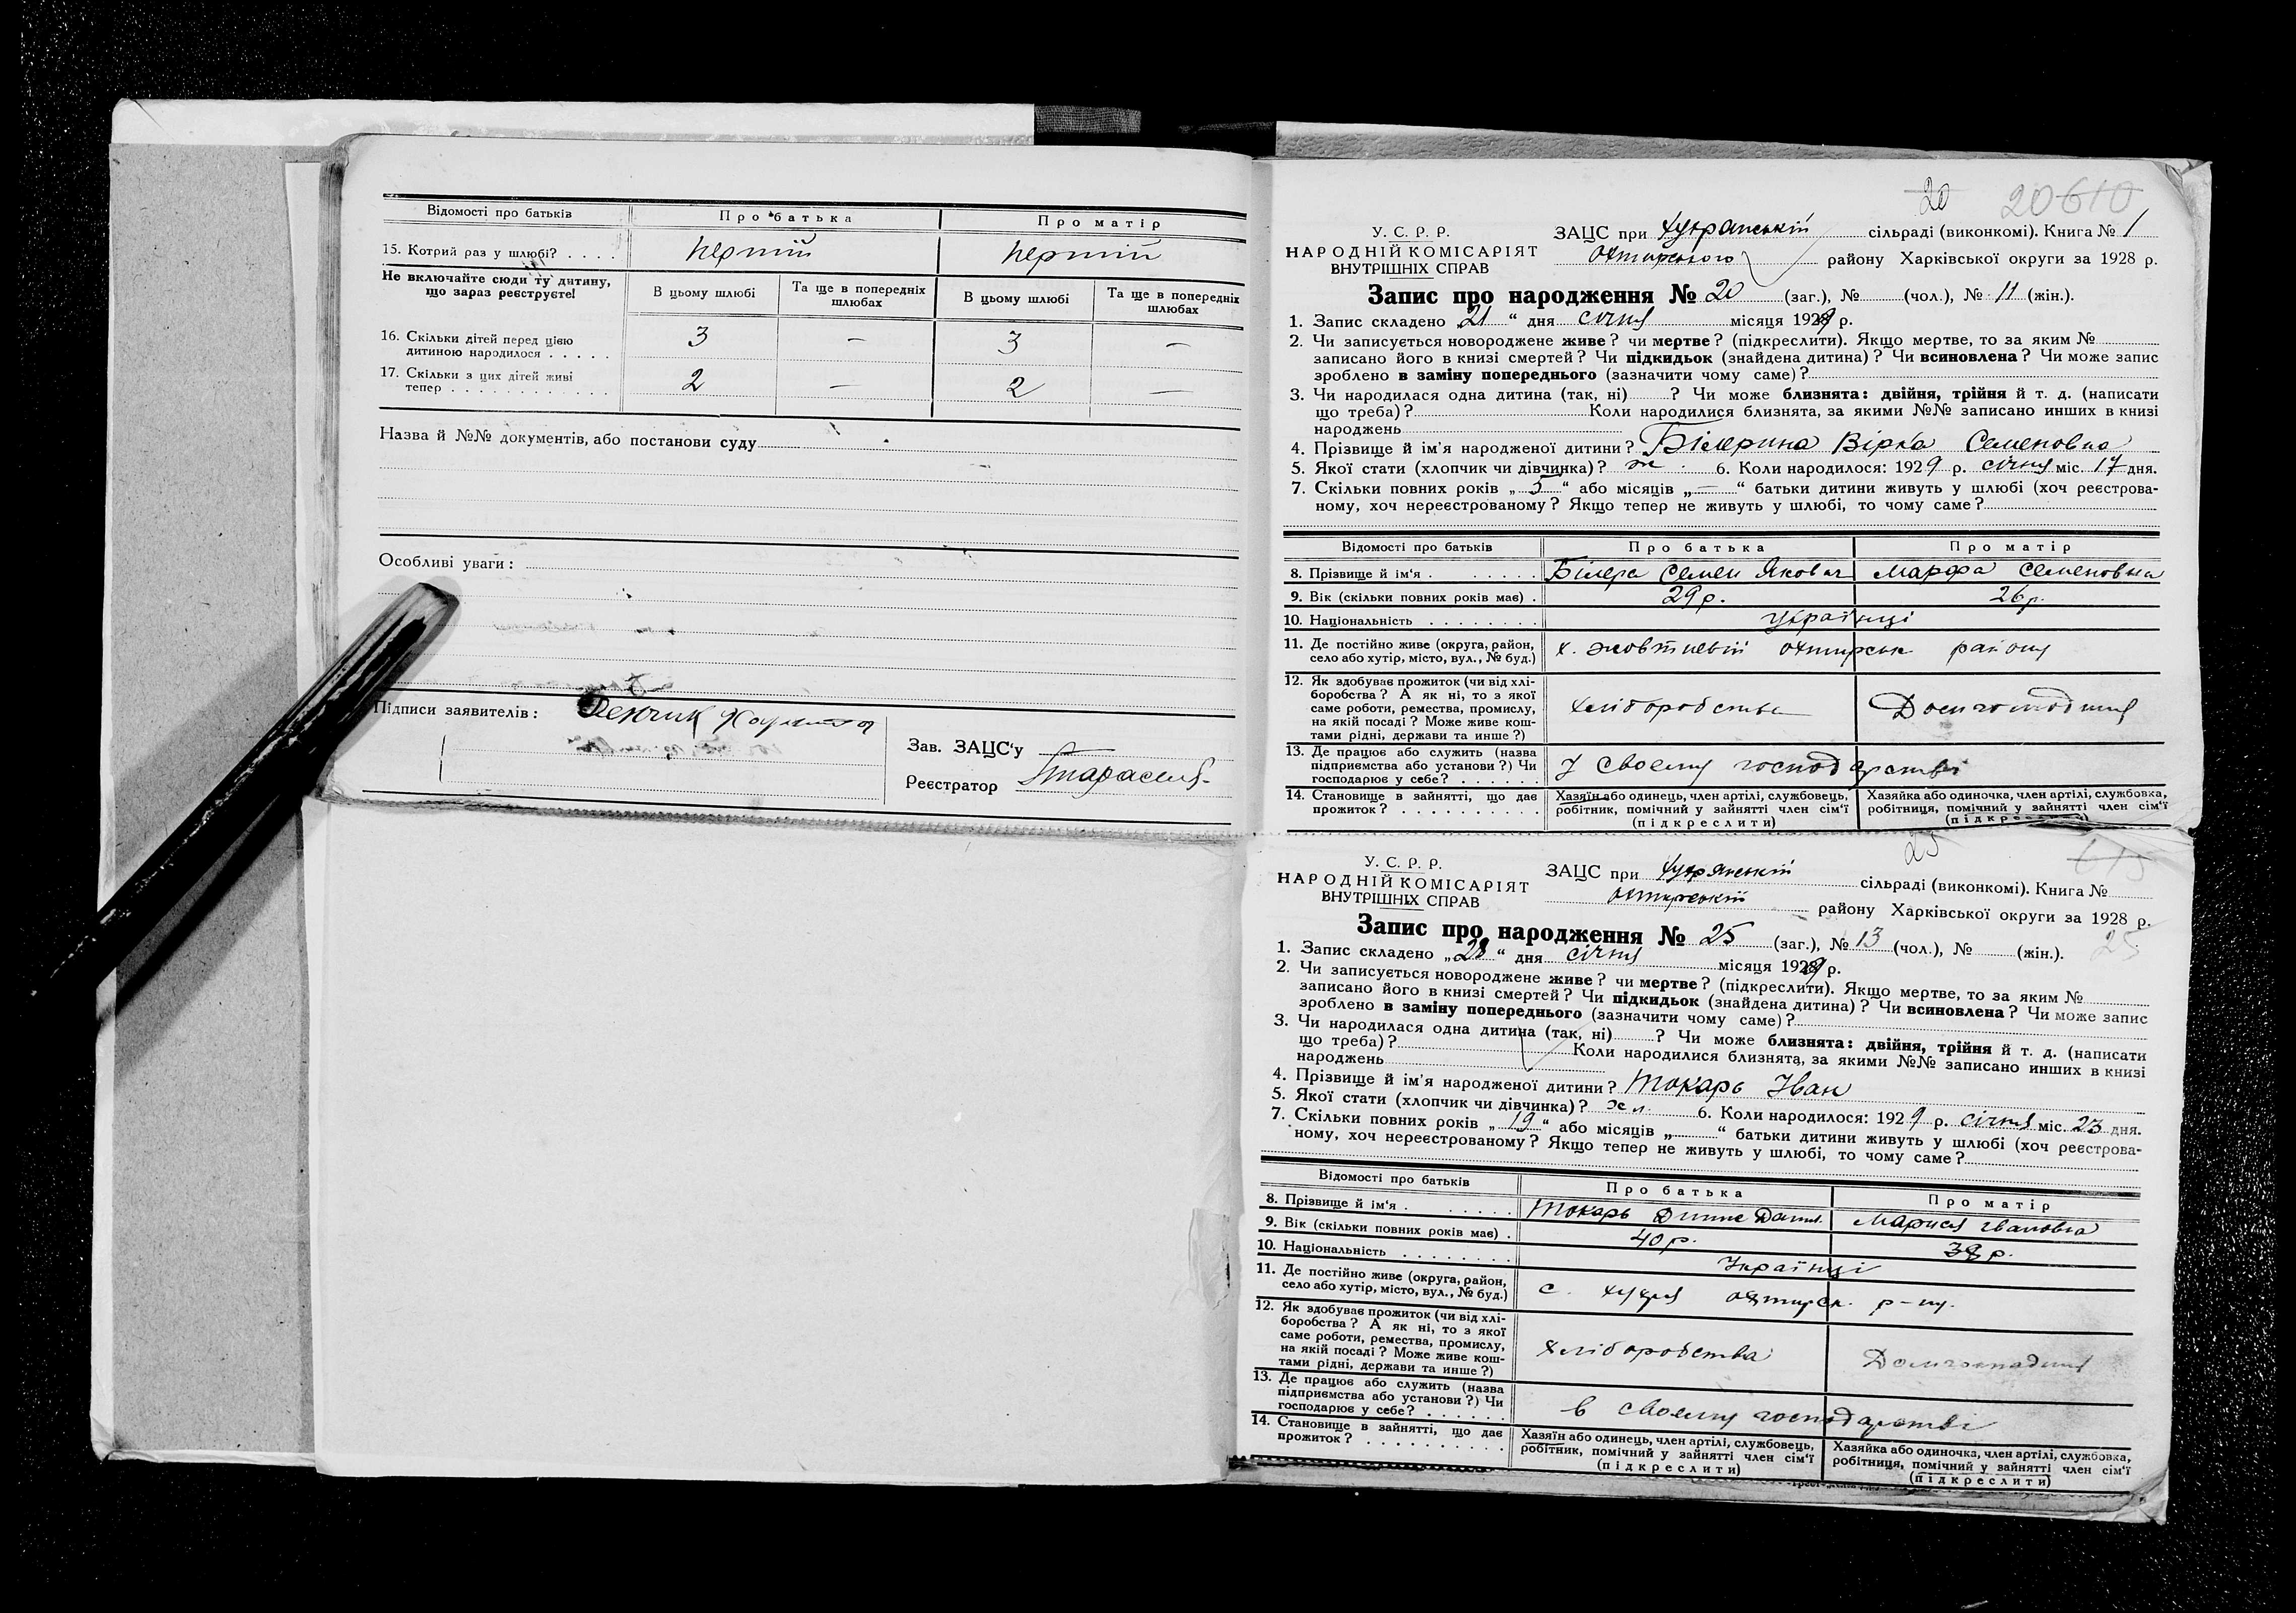 Відомості про батьків Про батька Про матір
15. Котрий раз у шлюбі? . . . . перший перший
Не включайте сюди ту дитину,
що зараз реєструєте!
В цьому шлюбі Та ще в попередніх шлюбах В цьому шлюбі Та ще в попередніх шлюбах
16. Скільки дітей перед цією
дитиною народилося . . . . . 3 — 3 —
17. Скільки з цих дітей живі
тепер . . . . . . . . . . . . 2 — 2 —
Назва й №№ документів, або постанови суду
Особливі уваги:
Підписи заявителів:
Зав. ЗАЦС'у
Реєстратор
20 20 610
У. С. Р. Р.
НАРОДНІЙ КОМІСАРІЯТ
ВНУТРІШНІХ СПРАВ
ЗАЦС при Хухранській сільраді (виконкомі). Книга № 1
Охтирського району Харківської округи за 1928 р.
Запис про народження № 20 (заг.), № (чол.), № 11 (жін.).
1. Запис складено „21“ дня січня місяця 1929 р.
2. Чи записується новороджене живе? чи мертве? (підкреслити). Якщо мертве, то за яким №
записано його в книзі смертей? Чи підкидьок (знайдена дитина)? Чи всиновлена? Чи може запис
зроблено в заміну попереднього (зазначити чому саме)?
3. Чи народилася одна дитина (так, ні)? Чи може близнята: двійня, трійня й т. д. (написати
що треба)? Коли народилися близнята, за якими №№ записано инших в книзі
народжень
4. Прізвище й ім'я народженої дитини? Вірка Семеновна
5. Якої стати (хлопчик чи дівчинка)? ж. 6. Коли народилося: 1929 р. січня міс. 17 дня.
7. Скільки повних років „5“ або місяців „—“ батьки дитини живуть у шлюбі (хоч реєстрова-
ному, хоч нереєстрованому? Якщо тепер не живуть у шлюбі, то чому саме?
Відомості про батьків Про батька Про матір
8. Прізвище й ім'я . . . . . . Семен Якович Марфа Семеновна
9. Вік (скільки повних років має) . 29 р. 26 р.
10. Національність . . . . . . . . Українці
11. Де постійно живе (округа, район,
село або хутір, місто, вул., № буд.) х. Жовтневий Охтирськ району
12. Як здобуває прожиток (чи від хлі-
боробства? А як ні, то з якої
саме роботи, ремества, промислу,
на якій посаді? Може живе кош-
тами рідні, держави та инше?) хліборобство Домгосподиня
13. Де працює або служить (назва
підприємства або установи?) Чи
господарює у себе? . . . . . . У своєму господарстві
14. Становище в зайнятті, що дає
прожиток? . . . . . . . . . .
Хазяїн або одинець, член артілі, службовець,
робітник, помічний у зайнятті член сім'ї
(підкреслити)
Хазяйка або одиночка, член артілі, службовка,
робітниця, помічний у зайнятті член сім'ї
25 615
У. С. Р. Р.
НАРОДНІЙ КОМІСАРІЯТ
ВНУТРІШНІХ СПРАВ
ЗАЦС при Хухрянській сільраді (виконкомі). Книга №
Охтирський району Харківської округи за 1928 р.
25
Запис про народження № 25 (заг.), № 13 (чол.), № (жін.).
1. Запис складено „28“ дня січня місяця 1929 р.
2. Чи записується новороджене живе? чи мертве? (підкреслити). Якщо мертве, то за яким №
записано його в книзі смертей? Чи підкидьок (знайдена дитина)? Чи всиновлена? Чи може запис
зроблено в заміну попереднього (зазначити чому саме)?
3. Чи народилася одна дитина (так, ні)? Чи може близнята: двійня, трійня й т. д. (написати
що треба)? Коли народилися близнята, за якими №№ записано инших в книзі
народжень
4. Прізвище й ім'я народженої дитини? Токарь Іван
5. Якої стати (хлопчик чи дівчинка)? хл. 6. Коли народилося: 1929 р. січня міс. 23 дня.
7. Скільки повних років „19“ або місяців „“ батьки дитини живуть у шлюбі (хоч реєстрова-
ному, хоч нереєстрованому? Якщо тепер не живуть у шлюбі, то чому саме?
Відомості про батьків Про батька Про матір
8. Прізвище й ім'я . . . . . . Токарь Мария Івановна
9. Вік (скільки повних років має) . 40 р. 38 р.
10. Національність . . . . . . . . Українці
11. Де постійно живе (округа, район,
село або хутір, місто, вул., № буд.) с. Хухря Охтирськ. р-ну.
12. Як здобуває прожиток (чи від хлі-
боробства? А як ні, то з якої
саме роботи, ремества, промислу,
на якій посаді? Може живе кош-
тами рідні, держави та инше?) хліборобства Домгосподиня
13. Де працює або служить (назва
підприємства або установи?) Чи
господарює у себе? . . . . . . в своєму господарстві
14. Становище в зайнятті, що дає
прожиток? . . . . . . . . . .
Хазяїн або одинець, член артілі, службовець,
робітник, помічний у зайнятті член сім'ї
(підкреслити)
Хазяйка або одиночка, член артілі, службовка,
робітниця, помічний у зайнятті член сім'ї
(підкреслити)